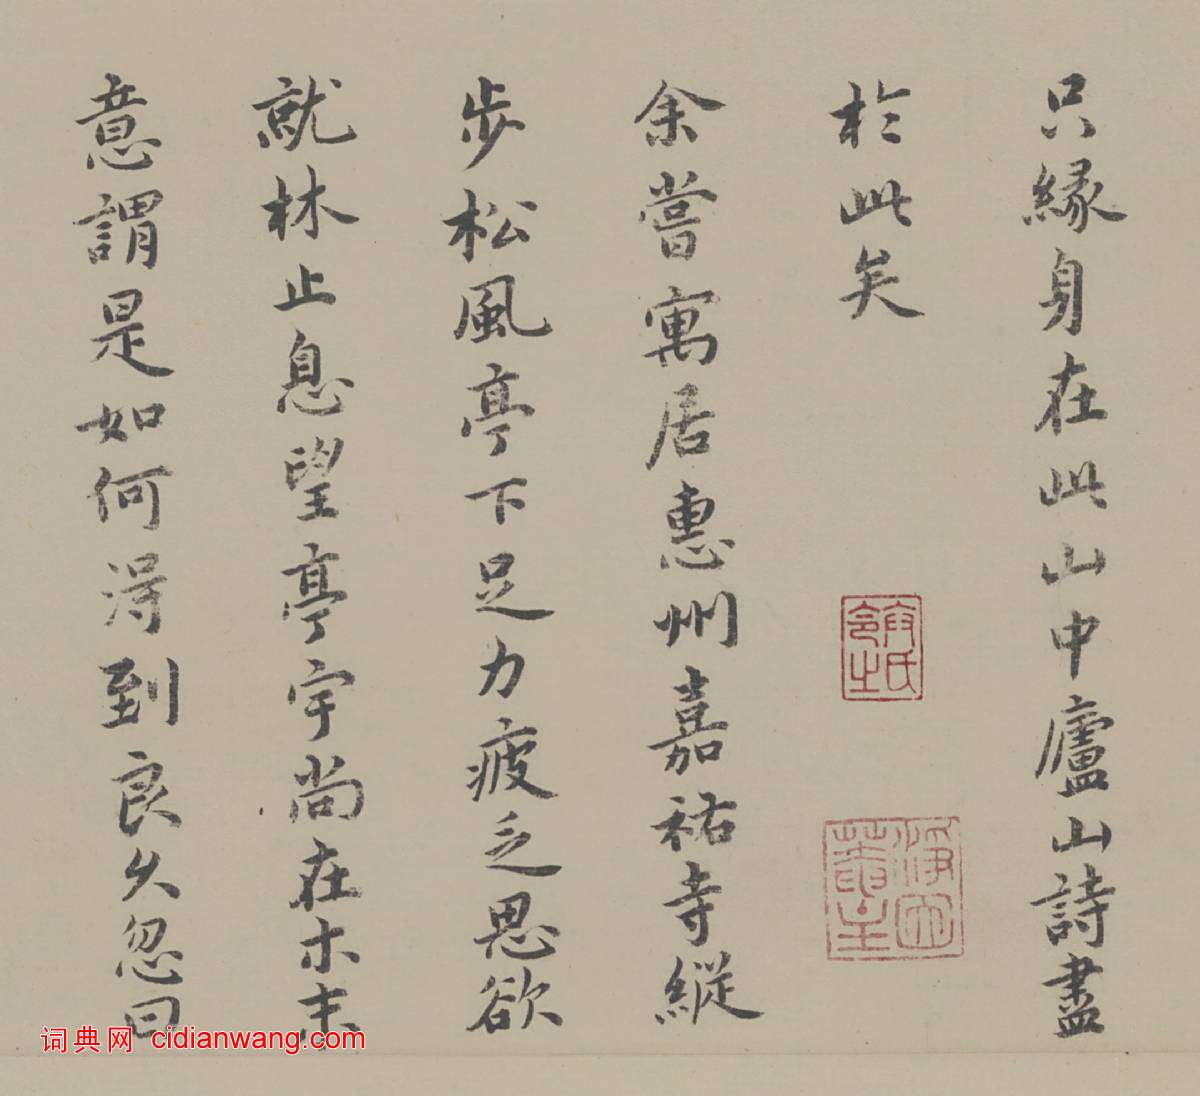 只緣身在此山中廬山詩盡
於此矣
余嘗寓居惠州嘉祐寺縱
步松風亭下足力疲乏思欲
就林止息望亭宇尚在木末
意謂是如何得到良久忽曰
词典网 cidianwang.com